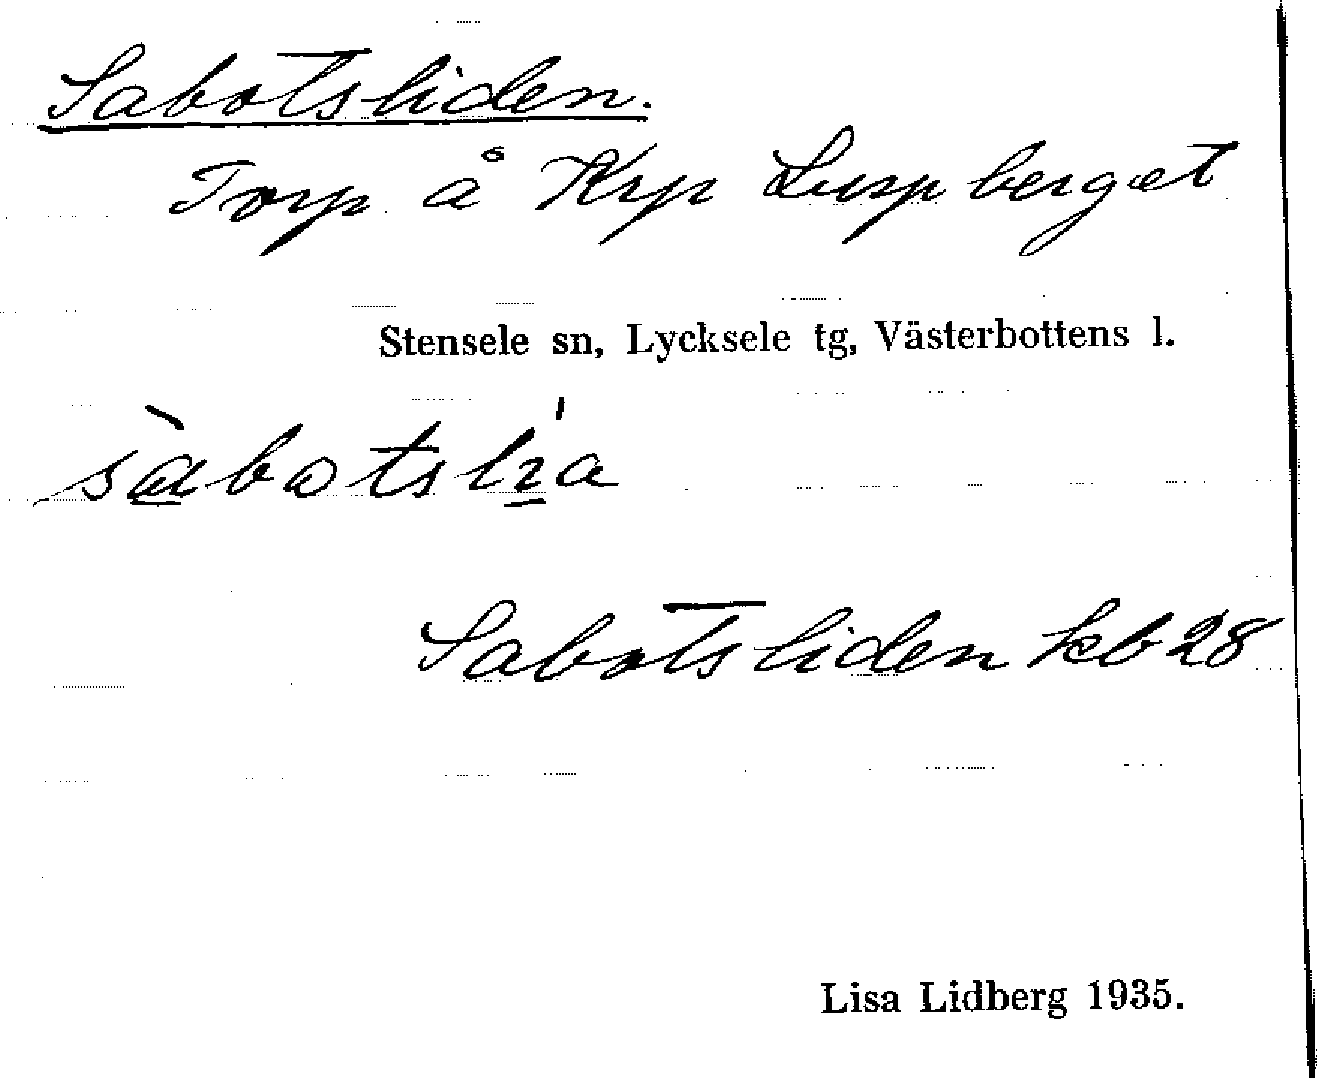 Sabotsliden.
Torp å Krp Luspberget
Stensele sn, Lycksele tg, Västerbottens l.
sàbotslía
Sabotsliden kb 28
Lisa Lidberg 1935.